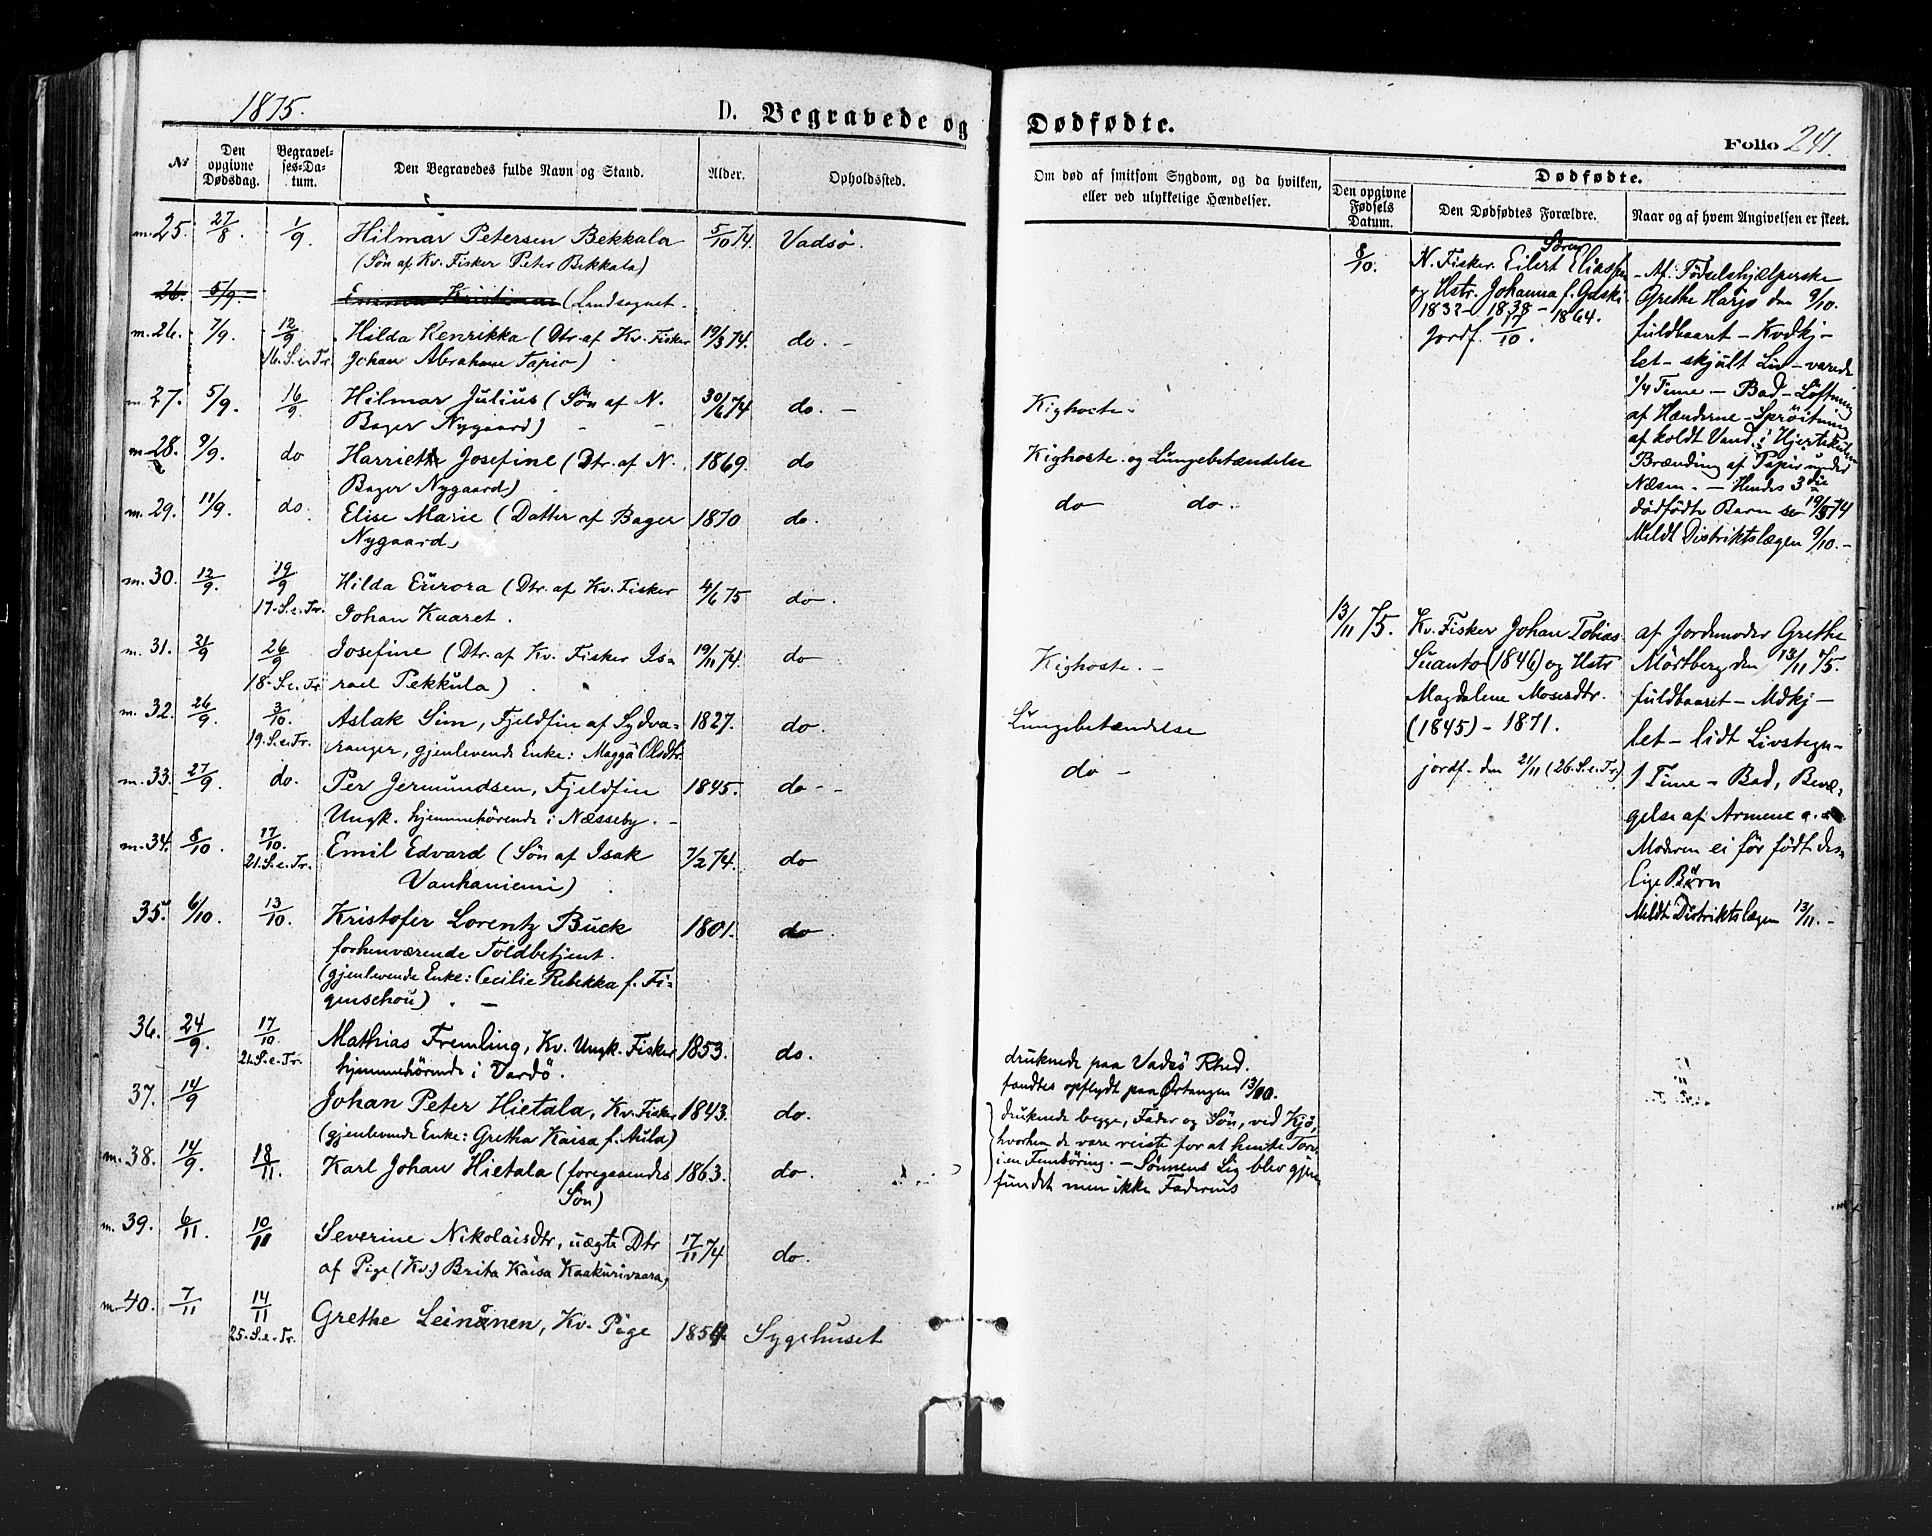 1875.
D. Begravede og Dødfødte.
Folio 241.
№
Den opgivne Dødsdag.
Begravelses-Datum.
Den Begravedes fulde Navn og Stand.
Alder.
Opholdssted.
Om død af smitsom Sygdom, og da hvilken,
eller ved ulykkelige Hændelser.
Dødfødte.
Den opgivne Fødsels Datum.
Den Dødfødtes Forældre.
Naar og af hvem Angivelsen er skeet.
m. 25. 27/8 1/9. Hilmar Petersen Bekkala 5/10 74. Vadsø.
(Søn af Kv. Fisker Peter Bekkala)
26. 5/9. Emma Kristina (Landsognet.
m. 26. 7/9. 12/9 Hilda Henrikka (Dtr. af Kv. Fisker 19/3 74. do. -
16. S. e. Tr. Johan Abraham Tapio)
m. 27. 5/9. 16/9. Hilmar Julius (Søn af N. 30/6 74 do. - Kighoste.
Bager Nygaard) - -
m. 28. 9/9. do Harriet Josefine (Dtr. af N. 1869. do Kighoste og Lungebetændelse
Bager Nygaard)
m. 29. 11/9. do. Elise Marie (Datter af Bager 1870 do. do do.
Nygaard)
m. 30. 12/9. 19/9 Hilda Eurora (Dtr. af Kv. Fisker 4/6 75 do.
17. S. e. Tr. Johan Kaaret.
m. 31. 21/9 26/9 Josefine (Dtr. af Kv. Fisker Isa 19/11 74. do Kighoste. -
18. S. e. Tr rael Pekkula)
m. 32. 26/9. 3/10. Aslak Sim, Fjeldfin af Sydva- 1827. do. Lungebetændelse
19. S. e. Tr. ranger, gjenlevende Enke: Magga Olsdtr
m. 33. 27/9. do. Per Jermundsen, Fjeldfin 1845. do - - do -
Ungk. hjemmehørende i Næsseby. -
m. 34. 8/10 17/10. Emil Edvard (Søn af Isak 7/2 74. do
21. S. e. Tr. Vanhaniemi)
35. 6/10. 13/10 Kristofer Lorentz Buck 1801. do.
forhenværende Toldbetjent.
(gjenlevende Enke: Cecilie Rebekka f. Fi-
genschou) . -
36. 24/9. 17/10 Mathias Fremling, Kv. Ungk. Fisker 1853. do. druknede paa Vadsö Rhed.
21. S. e. Tr. hjemmehörende i Vardö. fandtes opflydt paa Ørtangen 13/10.
37. 14/9 Johan Peter Hietala, Kv. Fisker 1843. do. druknede begge, Fader og Søn, ved Kjö,
(gjenlevende Enke: Gretha Kaisa f. Aula) hvorhen de vare reiste for at hente Torv
m. 38. 14/9. 18/11. Karl Johan Hietala (foregaaendes 1863. do. i en Fembøring. - Sönnens Lig blev gjen
Søn) fundet men ikke Faderens
m. 39. 6/11. 10/11 Severine Nikolaisdtr, uægte Dtr 17/11 74 do.
af Pige (Kv.) Brita Kaisa Kaakurivaara,
m. 40. 7/11 14/11 Grethe Leinonen, Kv. Pige 1854. Sygehuset
25. S. e. Tr.
8/10. N. Fisker Eilert Søren Eliassen
og Hstr. Johanna f.
1832 - 1838 - 1864.
Jordf. 17/10.
Af Fødselshjælperske
Grethe Harjo den 9/10.
fuldbaaret - Kvdkj-
let - skjult Liv - varede
1/4 Time - Bad - Löftning
af Hænderne - Sprøitning
af koldt Vand i Hjertekulen
Brænding af Papir under
Næsen. - Hendes 3die
dödfødte Barn se 19/5 74
Meldt Distriktslægen 9/10. -
13/11 75. Kv. Fisker Johan Tobias
Suanto (1846) og Hstr
Magdalene Mosesdtr.
(1845) - 1871.
jordf. den 21/11 (26. S. e. Tr.)
af Jordemoder Grethe
Mörtberg den 13/11 75.
fuldbaaret - Mdkj -
let - lidt Livstegn -
1 Time - Bad, Bevæ-
gelse af Armene
Moderen ei før født des-
lige Børn
Meldt Distriktslægen 13/11. -